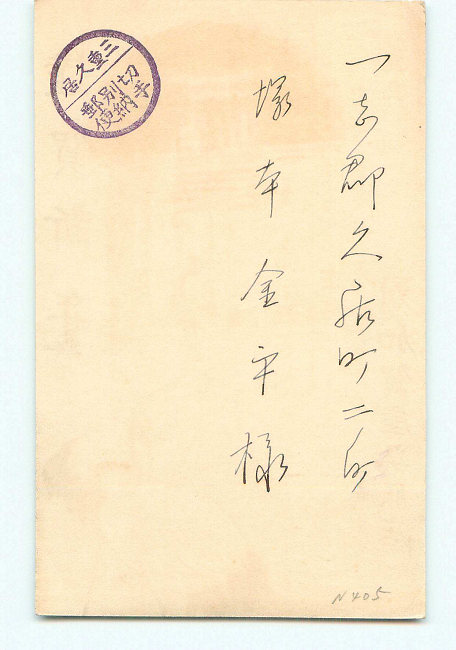 三重久居
切手
別納
郵便
一志郡久居町二ノ町
塚本金平様
N405